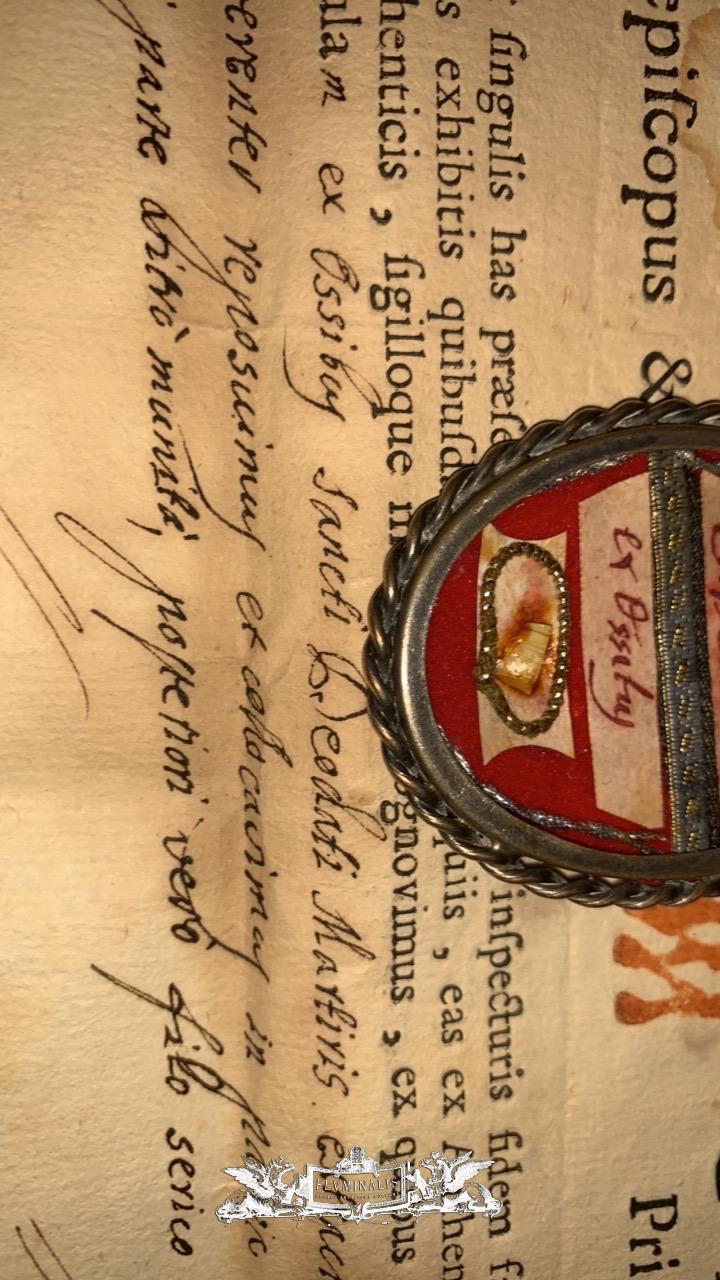 piſcopus &
Pri
ſingulis has præſ
inſpecturis fidem f
s exhibitis quibuſd
uiis , eas ex
henticis , ſigilloque m
gnovimus , ex
ex Ossibus Sancti Deodati Martiris.
reverenter reposuimus et collocavimus in
parte vitro munita, posteriori vero filo serico
ex Ossibus
FLVMINALIS